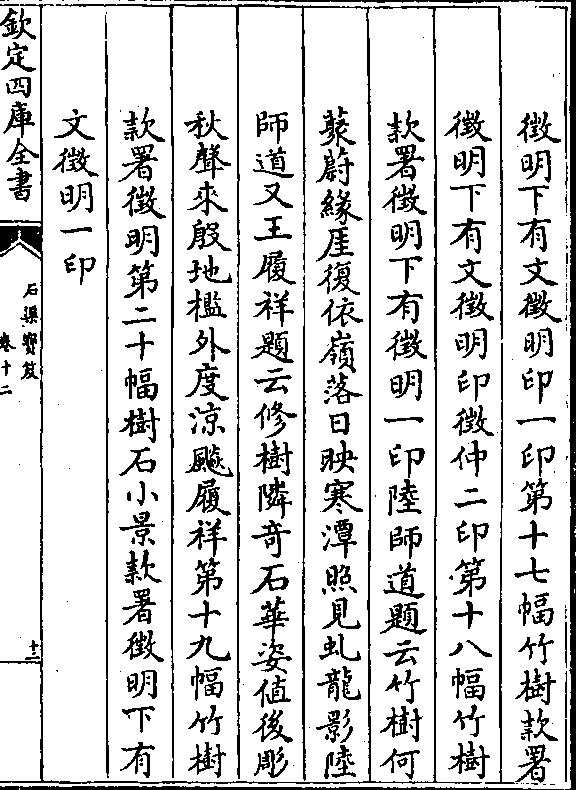 徵明下有文徵明印一印第十七幅竹樹款署
徵明下有文徵明印徵仲二印第十八幅竹樹
款署徵明下有徵明一印陸師道題云竹樹何
蓊蔚緣厓復依嶺落日映寒潭照見虬龍影陸
師道又王履祥題云修樹隣奇石華姿値後彫
秋聲來殷地檻外度涼飈履祥第十九幅竹樹
款署徵明第二十幅樹石小景款署徵明下有
文徵明一印
欽定四庫全書
石渠寳笈
卷十二
十二